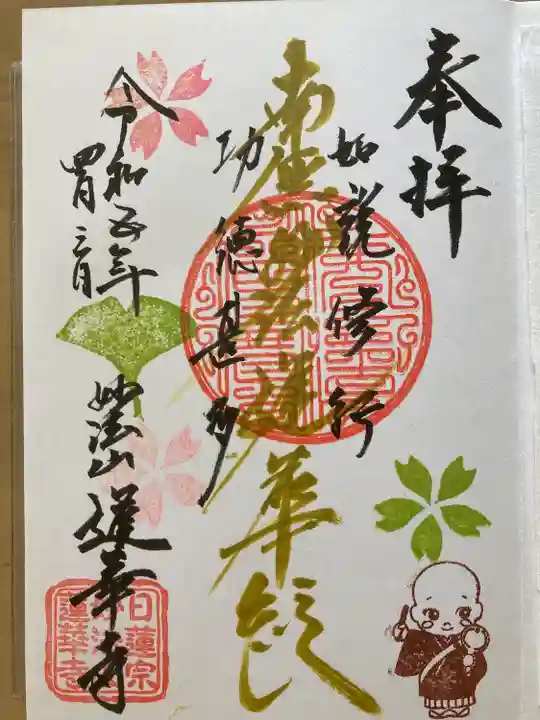 奉拝
如説修行
南無妙法蓮華経
功徳甚多
令和五年
四月三日
妙法山 蓮華寺
日蓮宗
蓮華寺